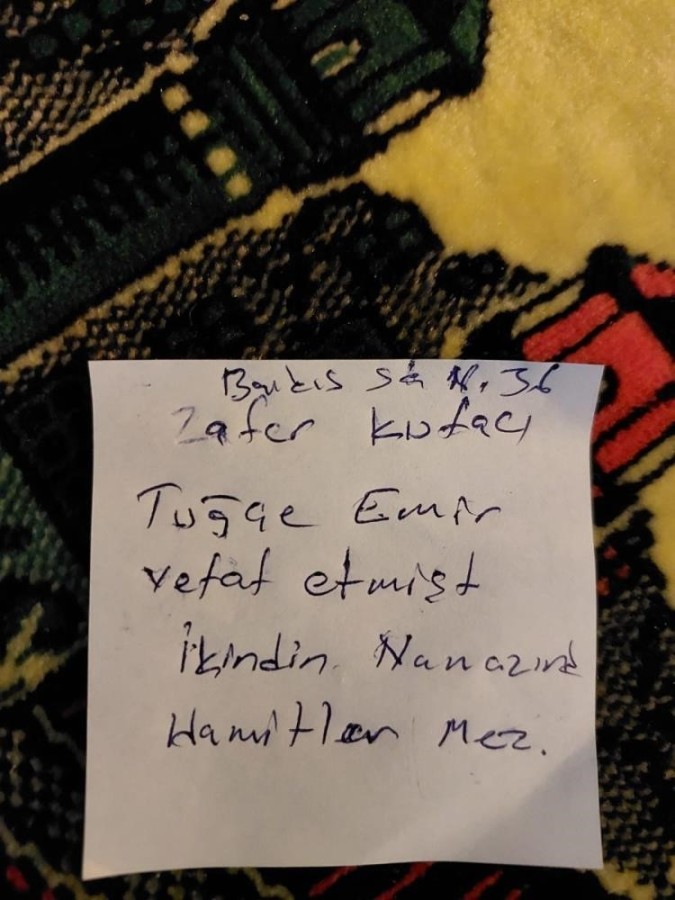 Sk N. 36
Zafer Kufacı
Tuğçe Emir
vefat etmişt
İkindin Namazınd
Hamitler Mez.